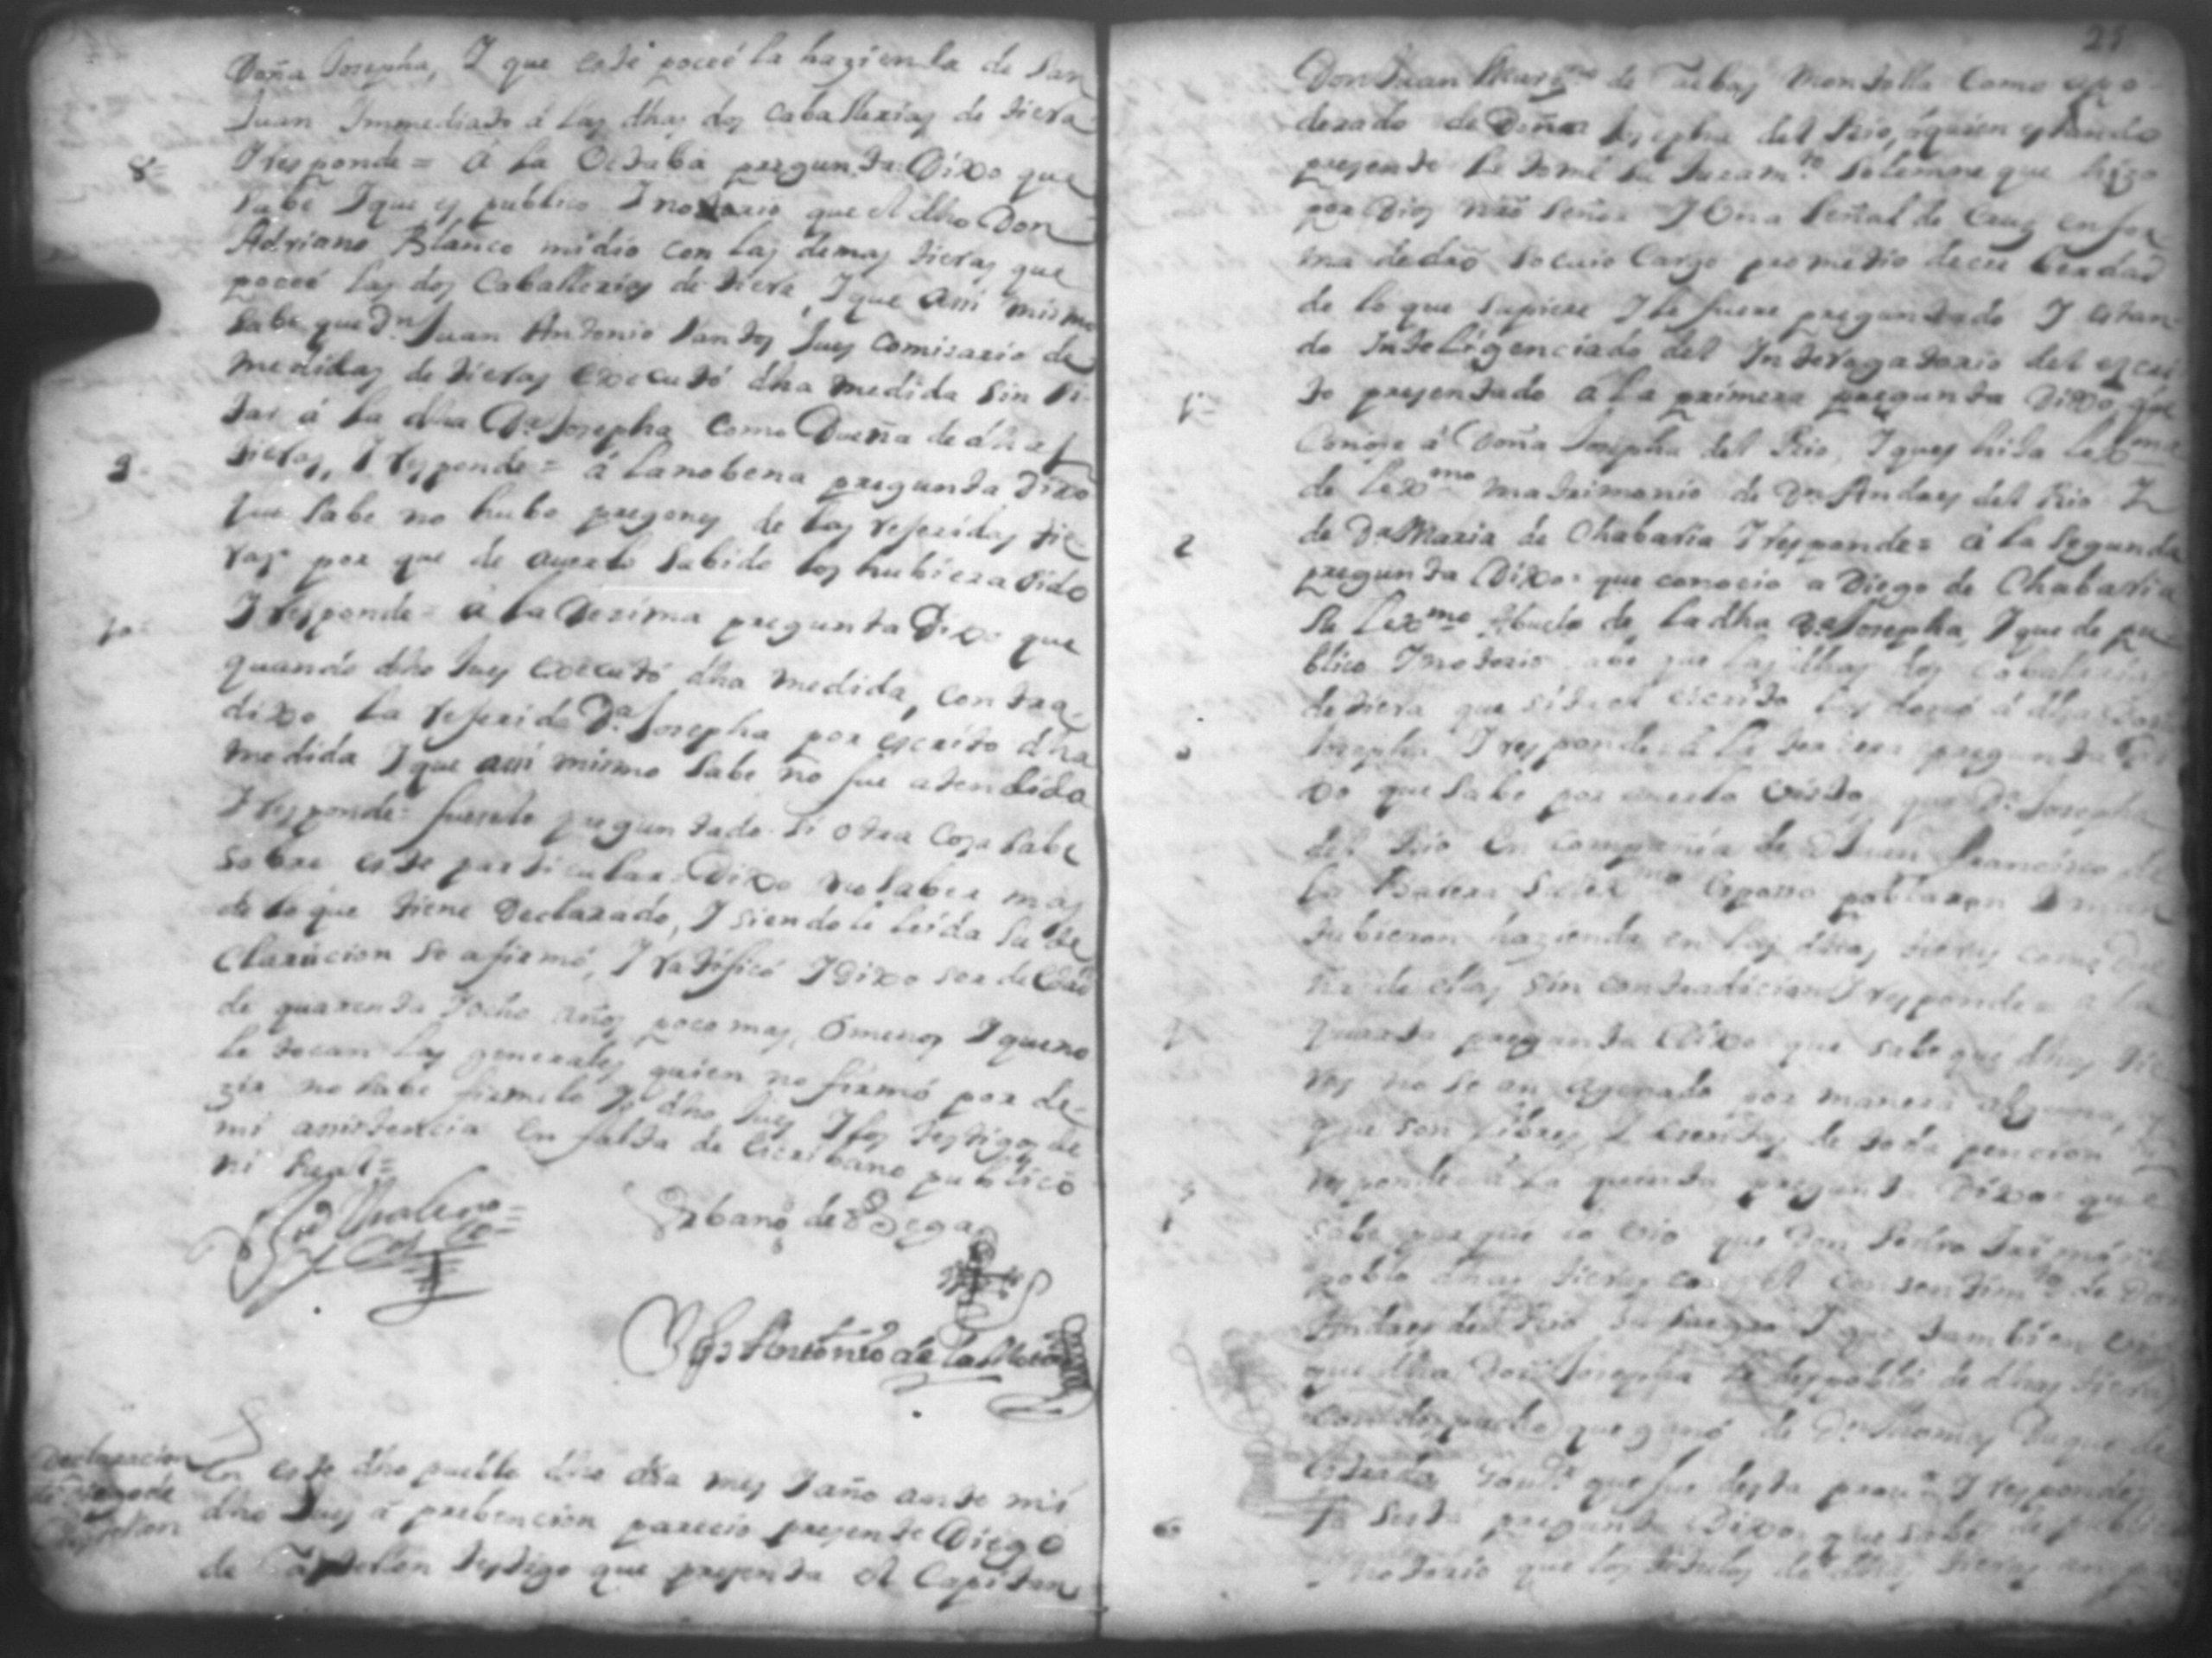 Doña Josepha, I que este poceé la hazienda de San
Juan Immediato á las dhas dos caballerias de tierra
8= I responde = á la Octaba pregunta Dixo que
sabe I que es público I notorio que el dho Don
Adriano Blanco midió con las demas tierras que
poceé las dos Caballerias de tierra, I que assi mismo
sabe que Dn Juan Antonio Santos Jues Comisario de
medidas de tierras executó dha medida sin si-
tar á la dha Da Josepha como Dueña de dhas
9= tierras, I responde = á la nobena pregunta Dixo
que sabe no hubo pregones de las referidas tie-
rras por que de averlo sabido los hubiera oido
10= I responde = á la Dezima pregunta Dixo que
quando dho Jues executó dha medida, contra-
dixo la referida Da Josepha por escrito dha
medida I que assi mismo sabe no fue atendida
I responde = fuele preguntado si otra cosa sabe
sobre este particular Dixo no saber mas
de lo que tiene Declarado, I siendole leida su de
claracion se afirmó, I ratificó I Dixo ser de edad
de quarenta I ocho años poco mas, ó menos I que no
le tocan las generales quien no firmó por de-
zir no sabe firmelo Io dho Jues I los testigos de
mi assistencia en falta de Escribano publico
ni Real =
Urbano de Vega
Antonio de la
Declaracion
de Diego de
Castellon
En este dho pueblo dho dia mes I año ante mi
dho Jues á prebencion parecio presente Diego
de Castellon testigo que presenta el Capitan
25
Don Juan de Monsolla como apo-
derado de Doña Josepha del Rio, á quien estando
presente le tomé su Juramto solemne que hizo
por Dios nro Señor I Una señal de Cruz en for-
ma de dro so cuio cargo prometio decir berdad
de lo que supiere I le fuere preguntado I estan-
do Inteligenciado del Interogatorio del escri
1= to presentado á la primera pregunta Dixo que
Conoce á Doña Josepha del Rio, I que es hija lexma
de lexmo matrimonio de Dn Andres del Rio I
2 de Da Maria de Chabaria I responde = á la segunda
pregunta Dixo = que conocio a Diego de Chabaria
su lexmo Abuelo de la dha Da Josepha, I que de pu-
blico I notorio sabe que las dhas dos caballerias
de tierra que sita el escrito las donó á dha Doña
3 Josepha I responde = á la tercera pregunta Di
xo que sabe por averlo visto, que Da Josepha
del Rio en compañia de Dn Juan Francisco de
la Barera su lexmo esposso poblaron I man
tubieron hazienda en las dhas tierras como due
ña de ellas sin contradicion I responde = á la
4 quarta pregunta Dixo que sabe que dhas tie
ras no se an agenado por manera alguna, y
que son libres I esentas de toda pencion I
5 responde = á la quinta pregunta Dixo = que
sabe porque lo vio que Don Pedro
pobló dhas tierras con el consentimto de Don
Andres del Rio su suegro I que tambien vio
que dha Doña Josepha le despobló de dhas tieras
con despacho que ganó de Dn Thomas Duque de
Estrada Gour que fue desta proua I responde =
6 la sesta pregunta Dixo, que sabe de publico
I notorio que los titulos de dhas tieras an